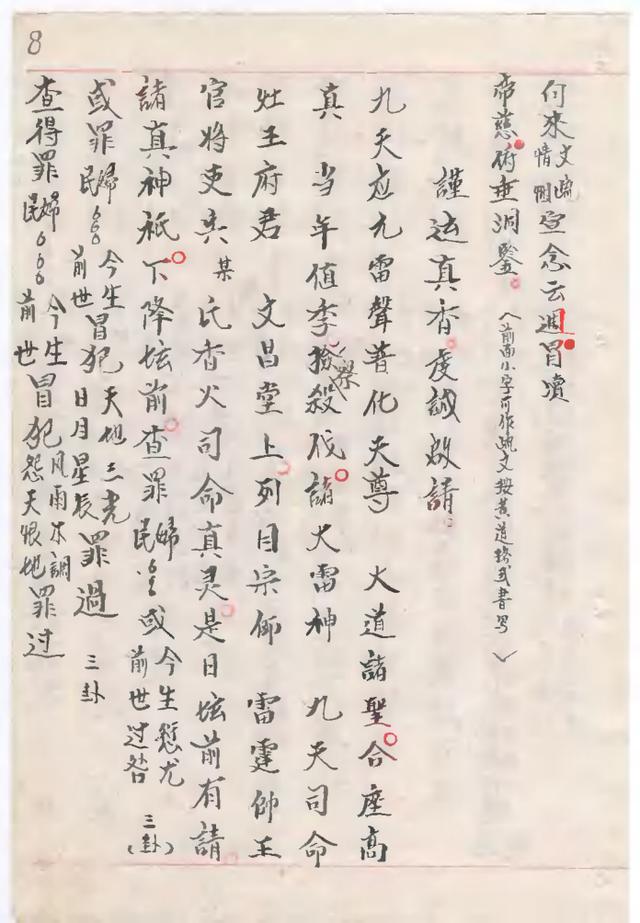 8
何來文疏情悃宣念云週冒瀆
帝慈俯垂洞鑒（前面小字可作疏文按黄道格式書写）
謹运真香虔誠啟請
九天应元雷聲普化天尊 大道諸聖合座高
真 當年值季撿察殺伐諸大雷神 九天司命
灶王府君 文昌堂上列目宗师 雷霆帅王
官将吏兵某氏香火司命真灵是日坛前有請
諸真神祇下降坛前查罪民婦或今生前世愆尤过咎三卦
或罪民婦今生前世冒犯天地三光日月星辰罪過 三卦
查得罪民婦今生前世冒犯风雨不調怨天恨地罪过